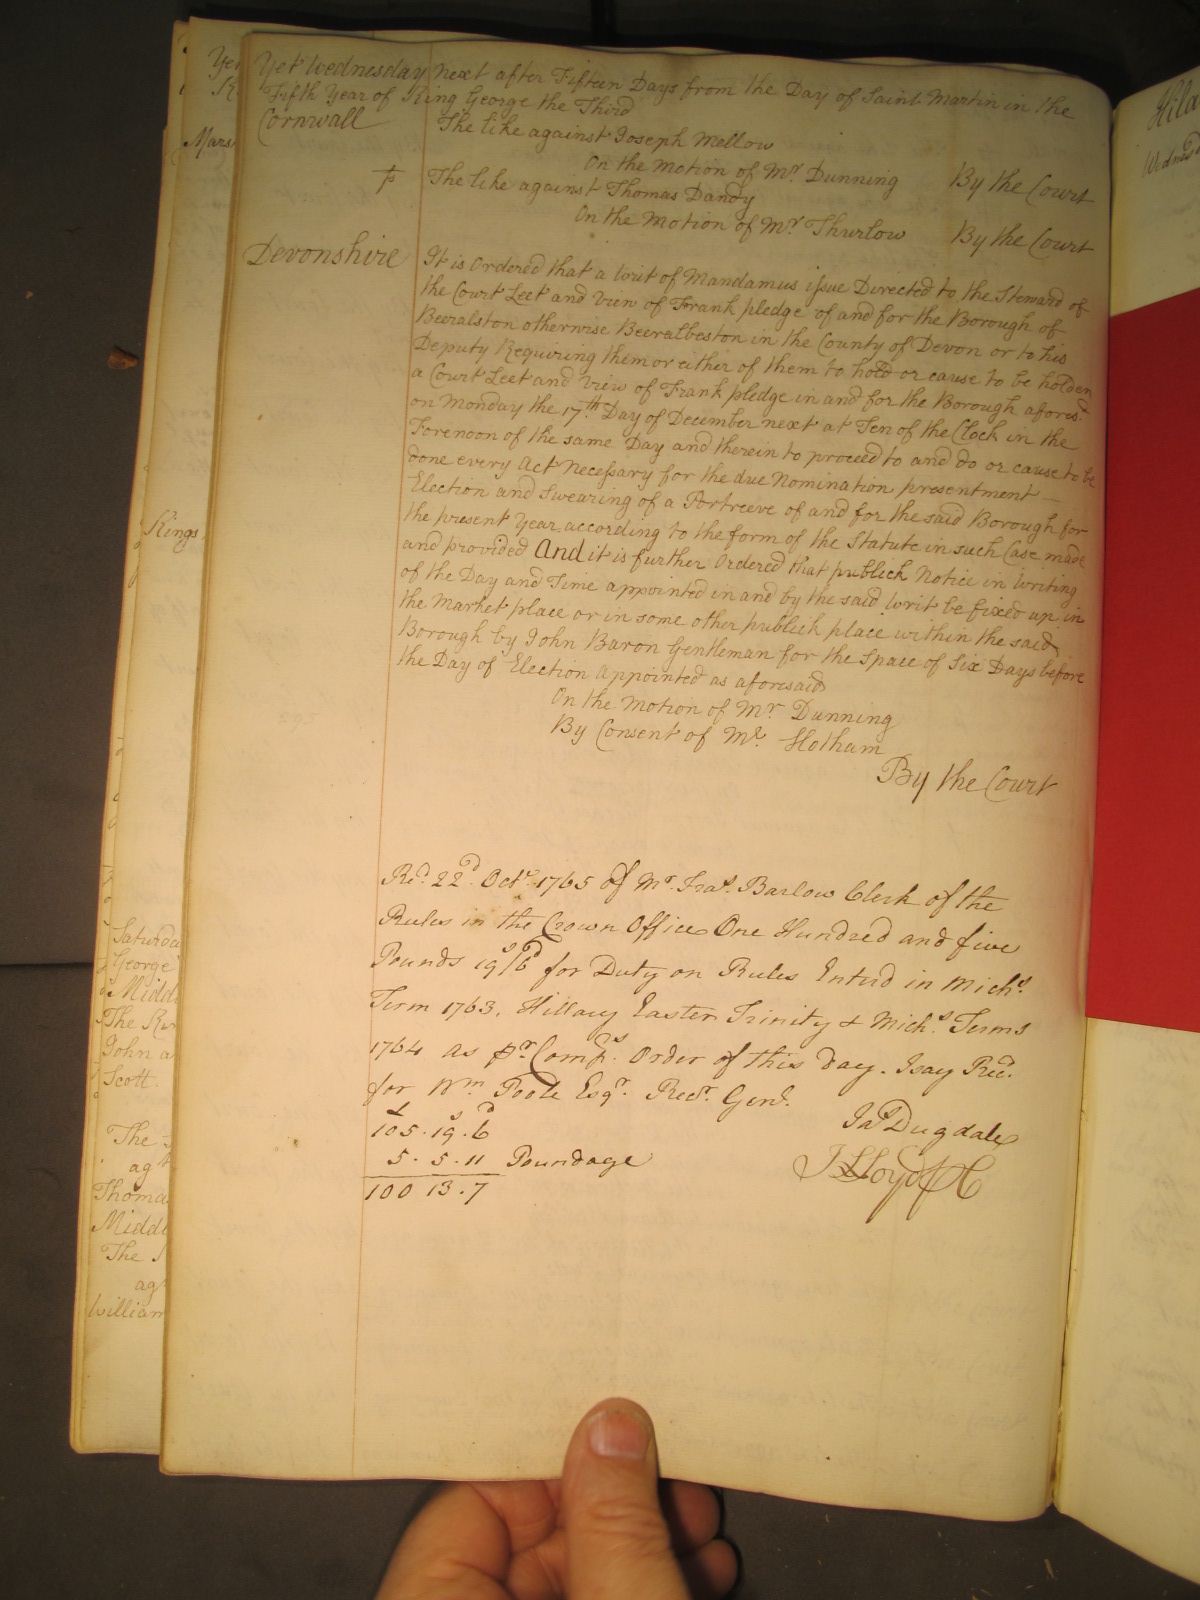 Yet Wednesday next after Fifteen Days from the Day of Saint Martin in the
Fifth Year of King George the Third
Cornwall
The like against Joseph Mellow
On the Motion of Mr. Dunning By the Court
The like against Thomas Dandy
On the Motion of Mr. Thurlow By the Court
Devonshire
It is Ordered that a Writ of Mandamus issue Directed to the Steward of
the Court Leet and View of Frank pledge of and for the Borough of
Beeralston otherwise Beeralbeston in the County of Devon or to his
Deputy Requiring them or either of them to hold or cause to be holden
a Court Leet and View of Frank pledge in and for the Borough afores.d
on Monday the 17.th Day of December next at Ten of the Clock in the
Forenoon of the same Day and therein to proceed to and do or cause to be
done every Act necessary for the due Nomination presentment
Election and Swearing of a Portreeve of and for the said Borough for
the present Year according to the form of the Statute in such Case made
and provided And it is further Ordered that publick Notice in Writing
of the Day and Time appointed in and by the said Writ be fixed up in
the Market place or in some other publick place within the said
Borough by John Baron Gentleman for the Space of Six Days before
the Day of Election appointed as aforesaid
On the Motion of Mr. Dunning
By Consent of Mr. Hotham
By the Court
Re.d 22.d Oct.r 1765 of Mr. Fra.s Barlow Clerk of the
Rules in the Crown Office One Hundred and five
Pounds 19s/6d for Duty on Rules Enterd in Mich.s
Term 1763, Hillary Easter Trinity & Mich.s Terms
1764 as pr. Com.rs Order of this day. I say Rec.d
for Wm Poole Esq.r Rec.r Gen.l
£ s d
105. 19. 6
5. 5. 11 Poundage
100 13. 7
Ja.s Dugdale
J Lloyd
Yet
Mars
Kings
Saturda
George
Midd
The
John a
Scott
The
ag
Thoma
Midd
The
ag
William
Hila
Wednesd